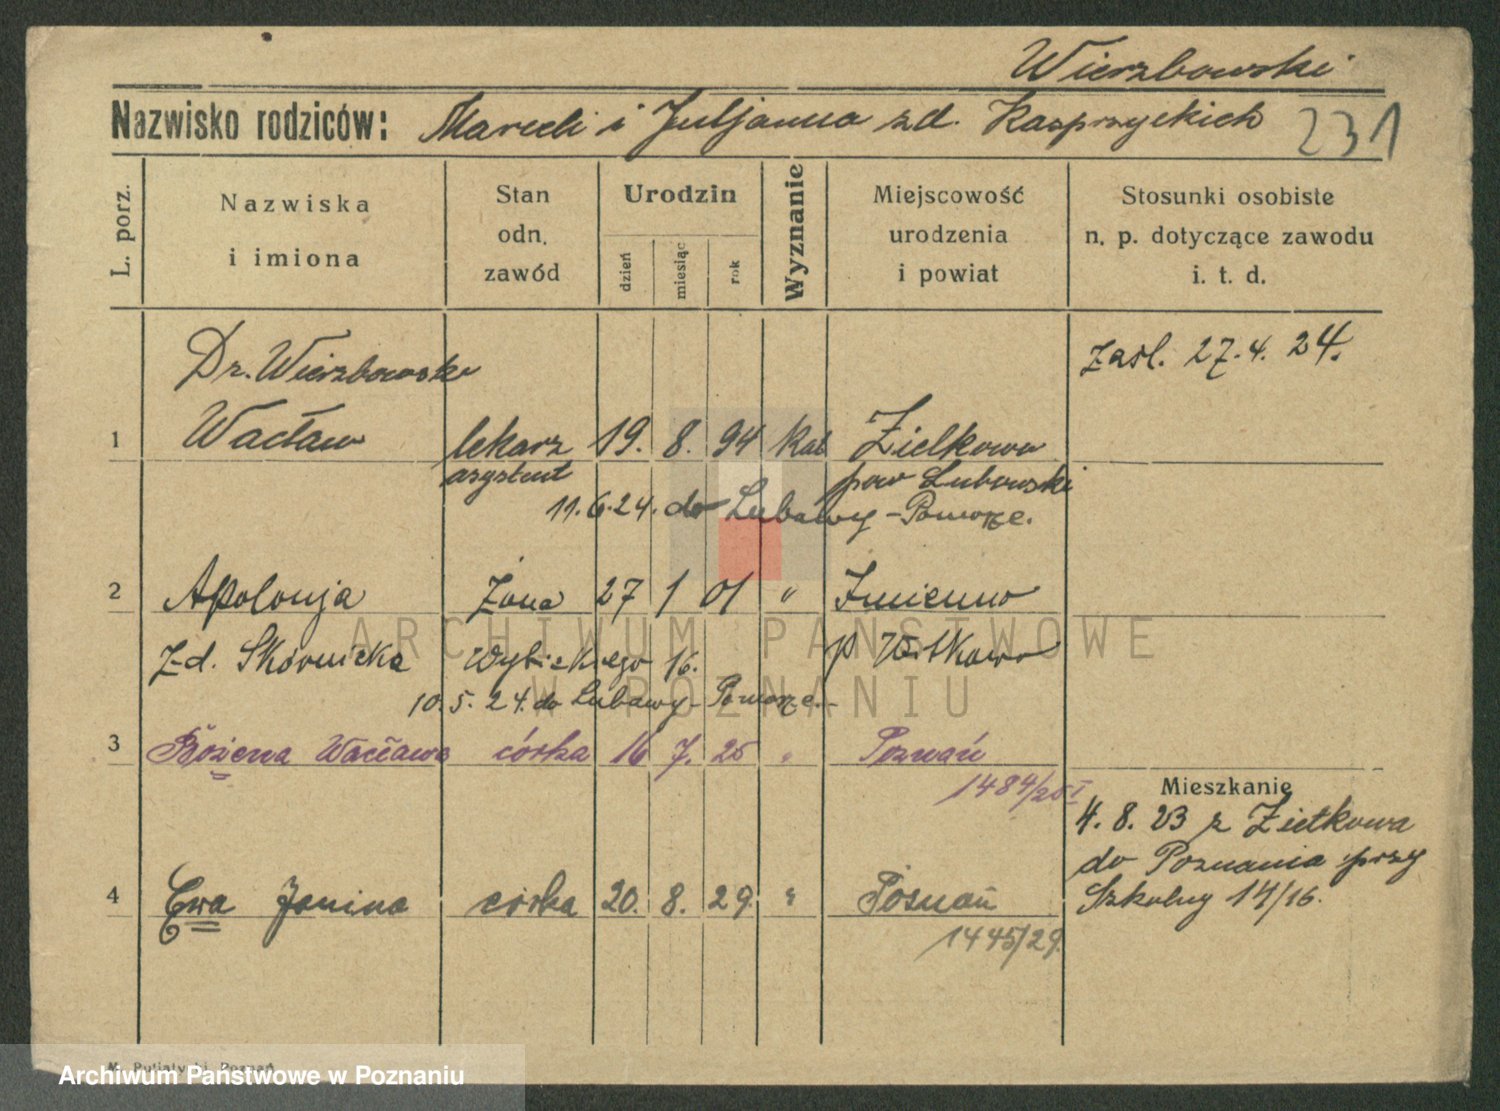 Wierzbowski
Nazwisko rodziców: Marceli i Juljanna zd. Kasprzyckich 231
L. porz.
Nazwiska i imiona
Stan odn. zawód
Urodzin
dzień miesiąc rok
Wyznanie
Miejscowość urodzenia i powiat
Stosunki osobiste n. p. dotyczące zawodu i. t. d.
Dr. Wierzbowski zasl. 27.4. 24.
1 Wacław lekarz 19. 8. 94 kat Zielkowo
asystent pow Lubowski
11.6.24. do Lubawy - Pomorze.
2 Apolonja żona 27 1 01 " Imienno
z d. Skórnicka Wybickiego 16. p Witkowo
10.5.24. do Lubawy - Pomorze.
3 Bożena Wacława córka 16 7. 25 " Poznań
1484/25 I
Mieszkanie
4. 8. 23 z Zielkowa
do Poznania przy
4 Ewa Janina córka 20. 8. 29. " Poznań Szkolny 14/16.
1445/29.
ARCHIWUM PAŃSTWOWE
W POZNANIU
Poznań
Archiwum Państwowe w Poznaniu